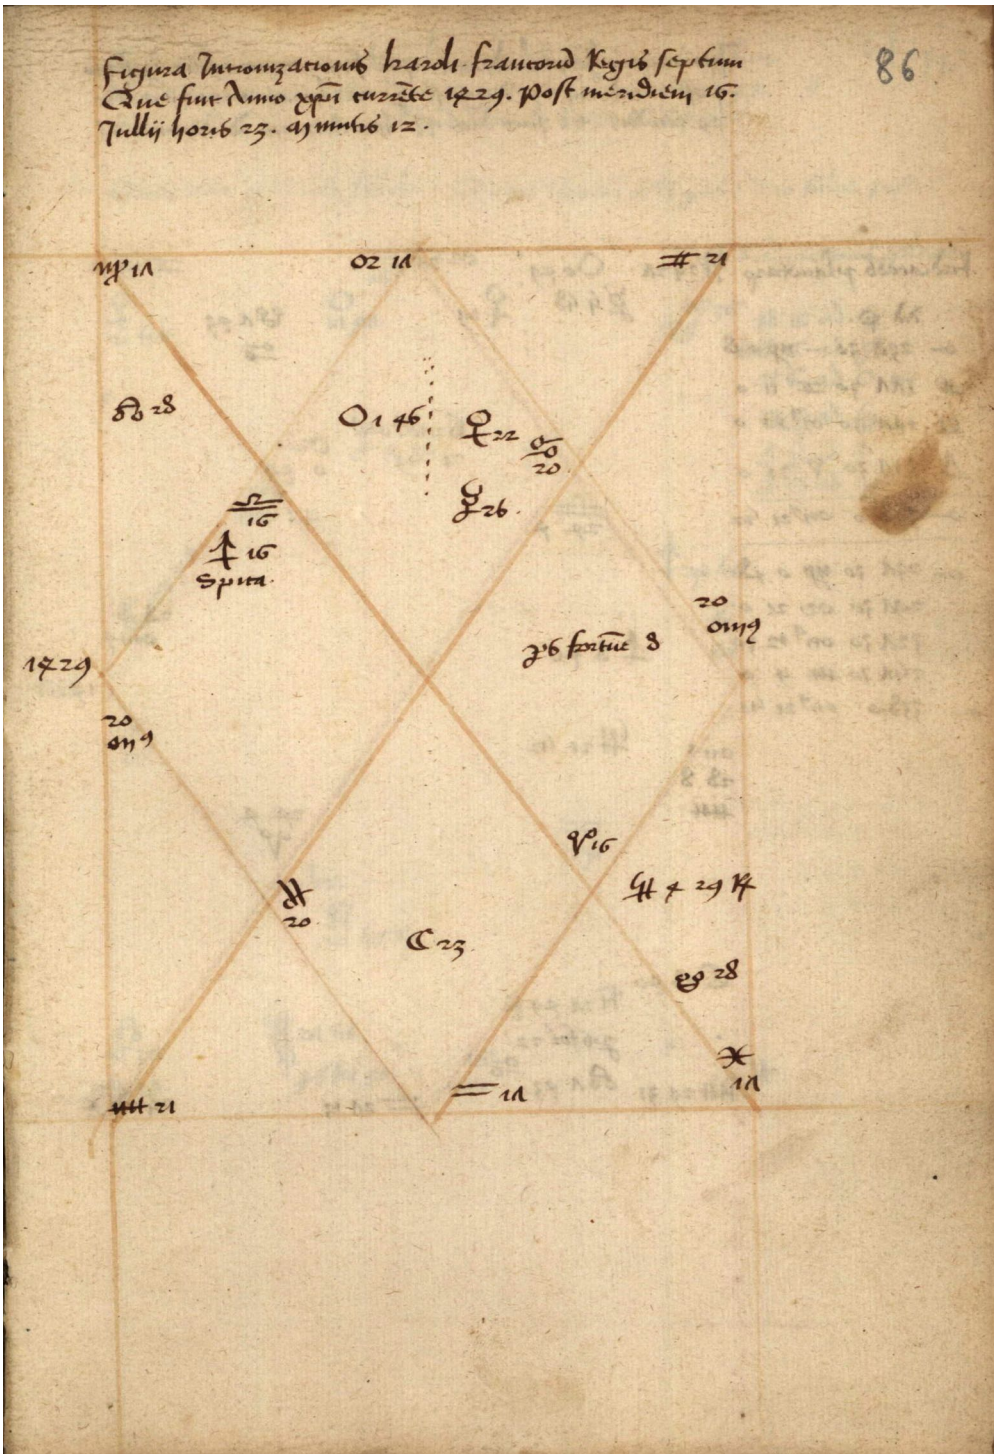 86
Figura Intronizacionis karoli francorū Regis septimi
Que fuit Anno xpī currēte 1429. Post meridiem 16.
Jullij horis 23. minutis 12.
♍ 17
♌ 17
♊ 21
28
☉ 1 46
♀ 22
♋
20
♎
16
☿ 26.
16
Spica.
20
1429
ps fortūe 8
20
♈ 16
4 29 ℞
20
☾ 23
28
♓
17
♒ 17
21